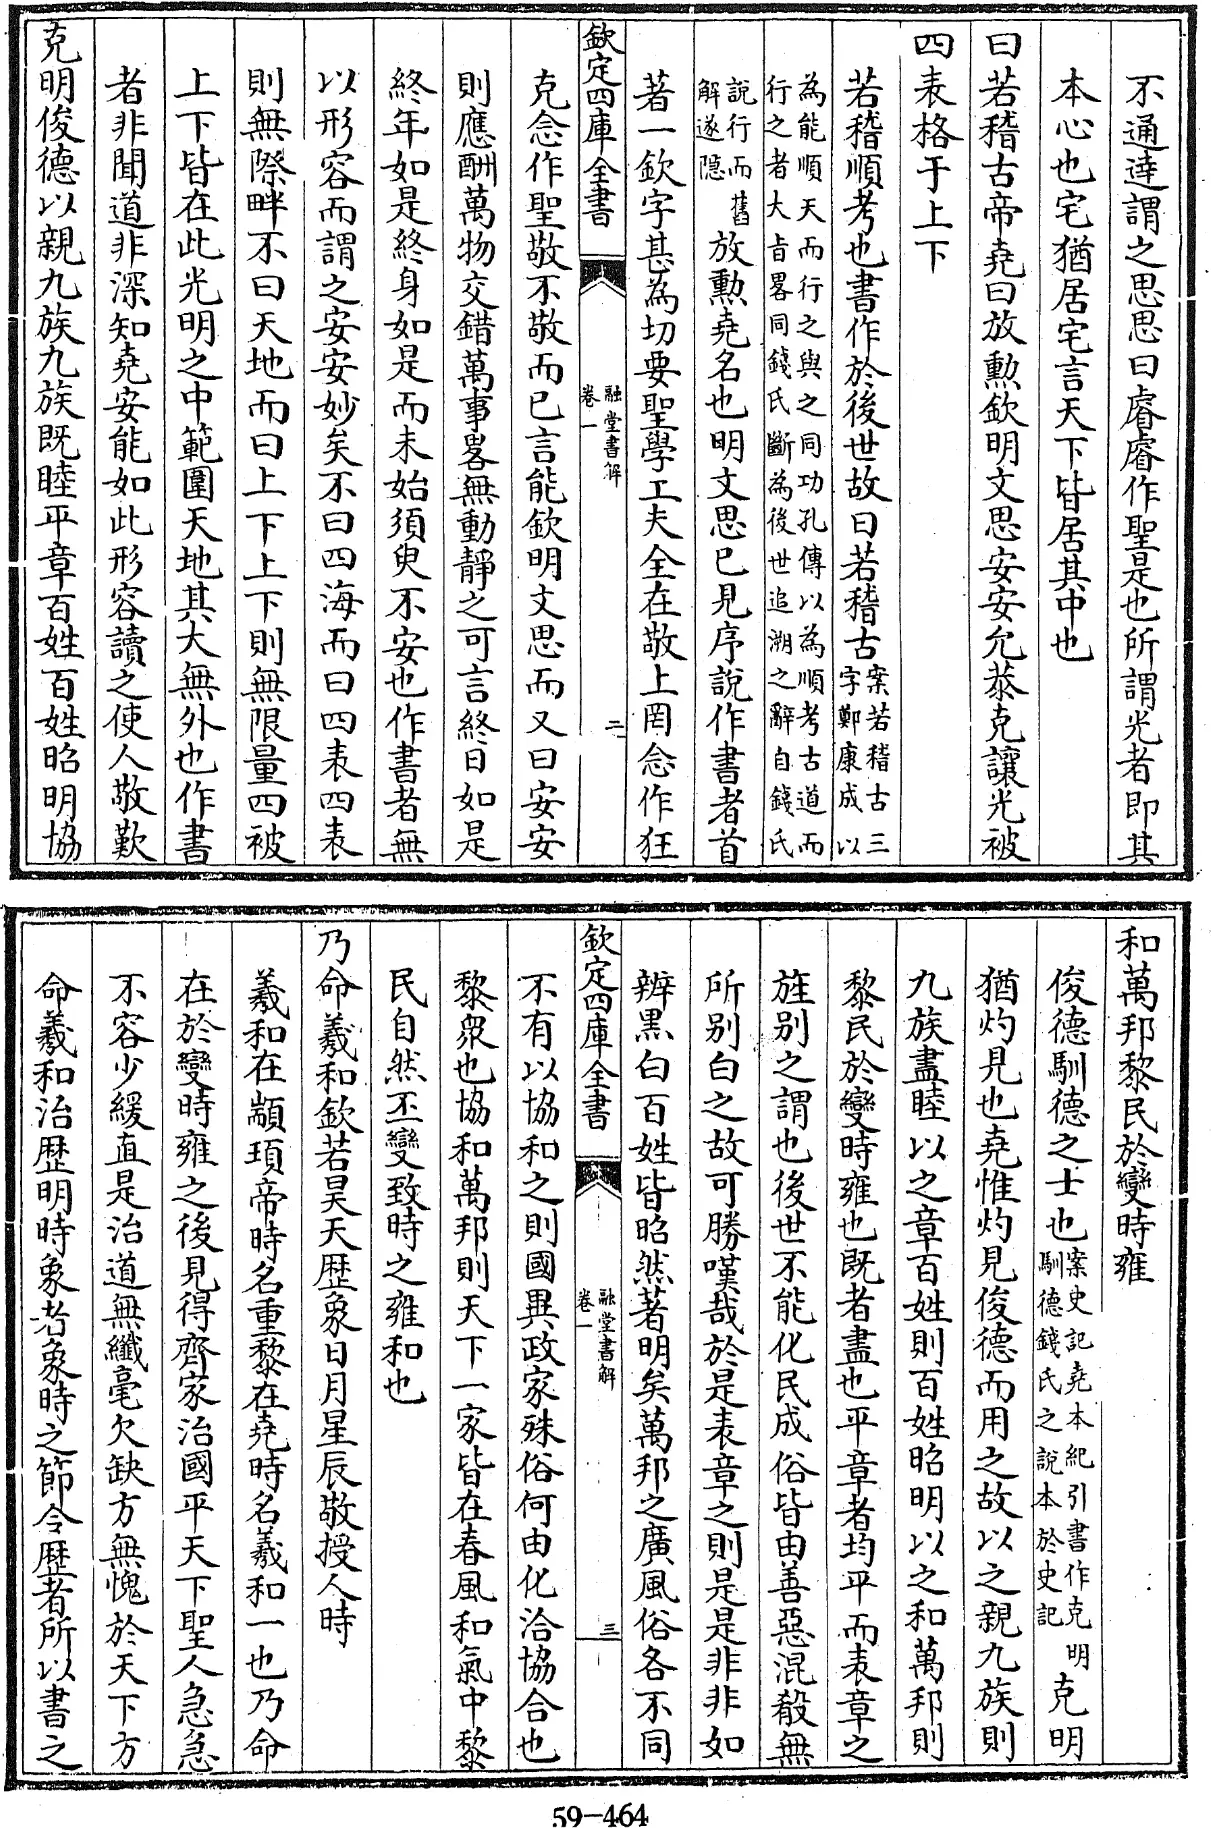 不通達謂之思思曰睿睿作聖是也所謂光者即其
本心也宅猶居宅言天下皆居其中也
曰若稽古帝堯曰放勲欽明文思安安允恭克讓光被
四表格于上下
若稽順考也書作於後世故曰若稽古案若稽古三
字鄭康成以
為能順天而行之與之同功孔傳以為順考古道而
行之者大㫖畧同錢氏斷為後世追溯之辭自錢氏
說行而舊
解遂隱
放勲堯名也明文思已見序說作書者首
著一欽字甚為切要聖學工夫全在敬上罔念作狂
欽定四庫全書
融堂書解
卷一
二
克念作聖敬不敬而已言能欽明文思而又曰安安
則應酬萬物交錯萬事畧無動靜之可言終日如是
終年如是終身如是而未始須臾不安也作書者無
以形容而謂之安安妙矣不曰四海而曰四表四表
則無際畔不曰天地而曰上下上下則無限量四被
上下皆在此光明之中範圍天地其大無外也作書
者非聞道非深知堯安能如此形容讀之使人敬歎
克明俊德以親九族九族既睦平章百姓百姓昭明協
和萬邦黎民於變時雍
俊德馴德之士也案史記堯本紀引書作克明
馴德錢氏之說本於史記
克明
猶灼見也堯惟灼見俊德而用之故以之親九族則
九族盡睦以之章百姓則百姓昭明以之和萬邦則
黎民於變時雍也既者盡也平章者均平而表章之
旌別之謂也後世不能化民成俗皆由善惡混殽無
所別白之故可勝嘆哉於是表章之則是是非非如
辨黒白百姓皆昭然著明矣萬邦之廣風俗各不同
欽定四庫全書
融堂書解
卷一
三
不有以協和之則國異政家殊俗何由化洽協合也
黎衆也協和萬邦則天下一家皆在春風和氣中黎
民自然丕變致時之雍和也
乃命羲和欽若昊天歴象日月星辰敬授人時
羲和在顓頊帝時名重黎在堯時名羲和一也乃命
在於變時雍之後見得齊家治國平天下聖人急急
不容少緩直是治道無纖毫欠缺方無愧於天下方
命羲和治歴明時象者象時之節令歴者所以書之
59-464